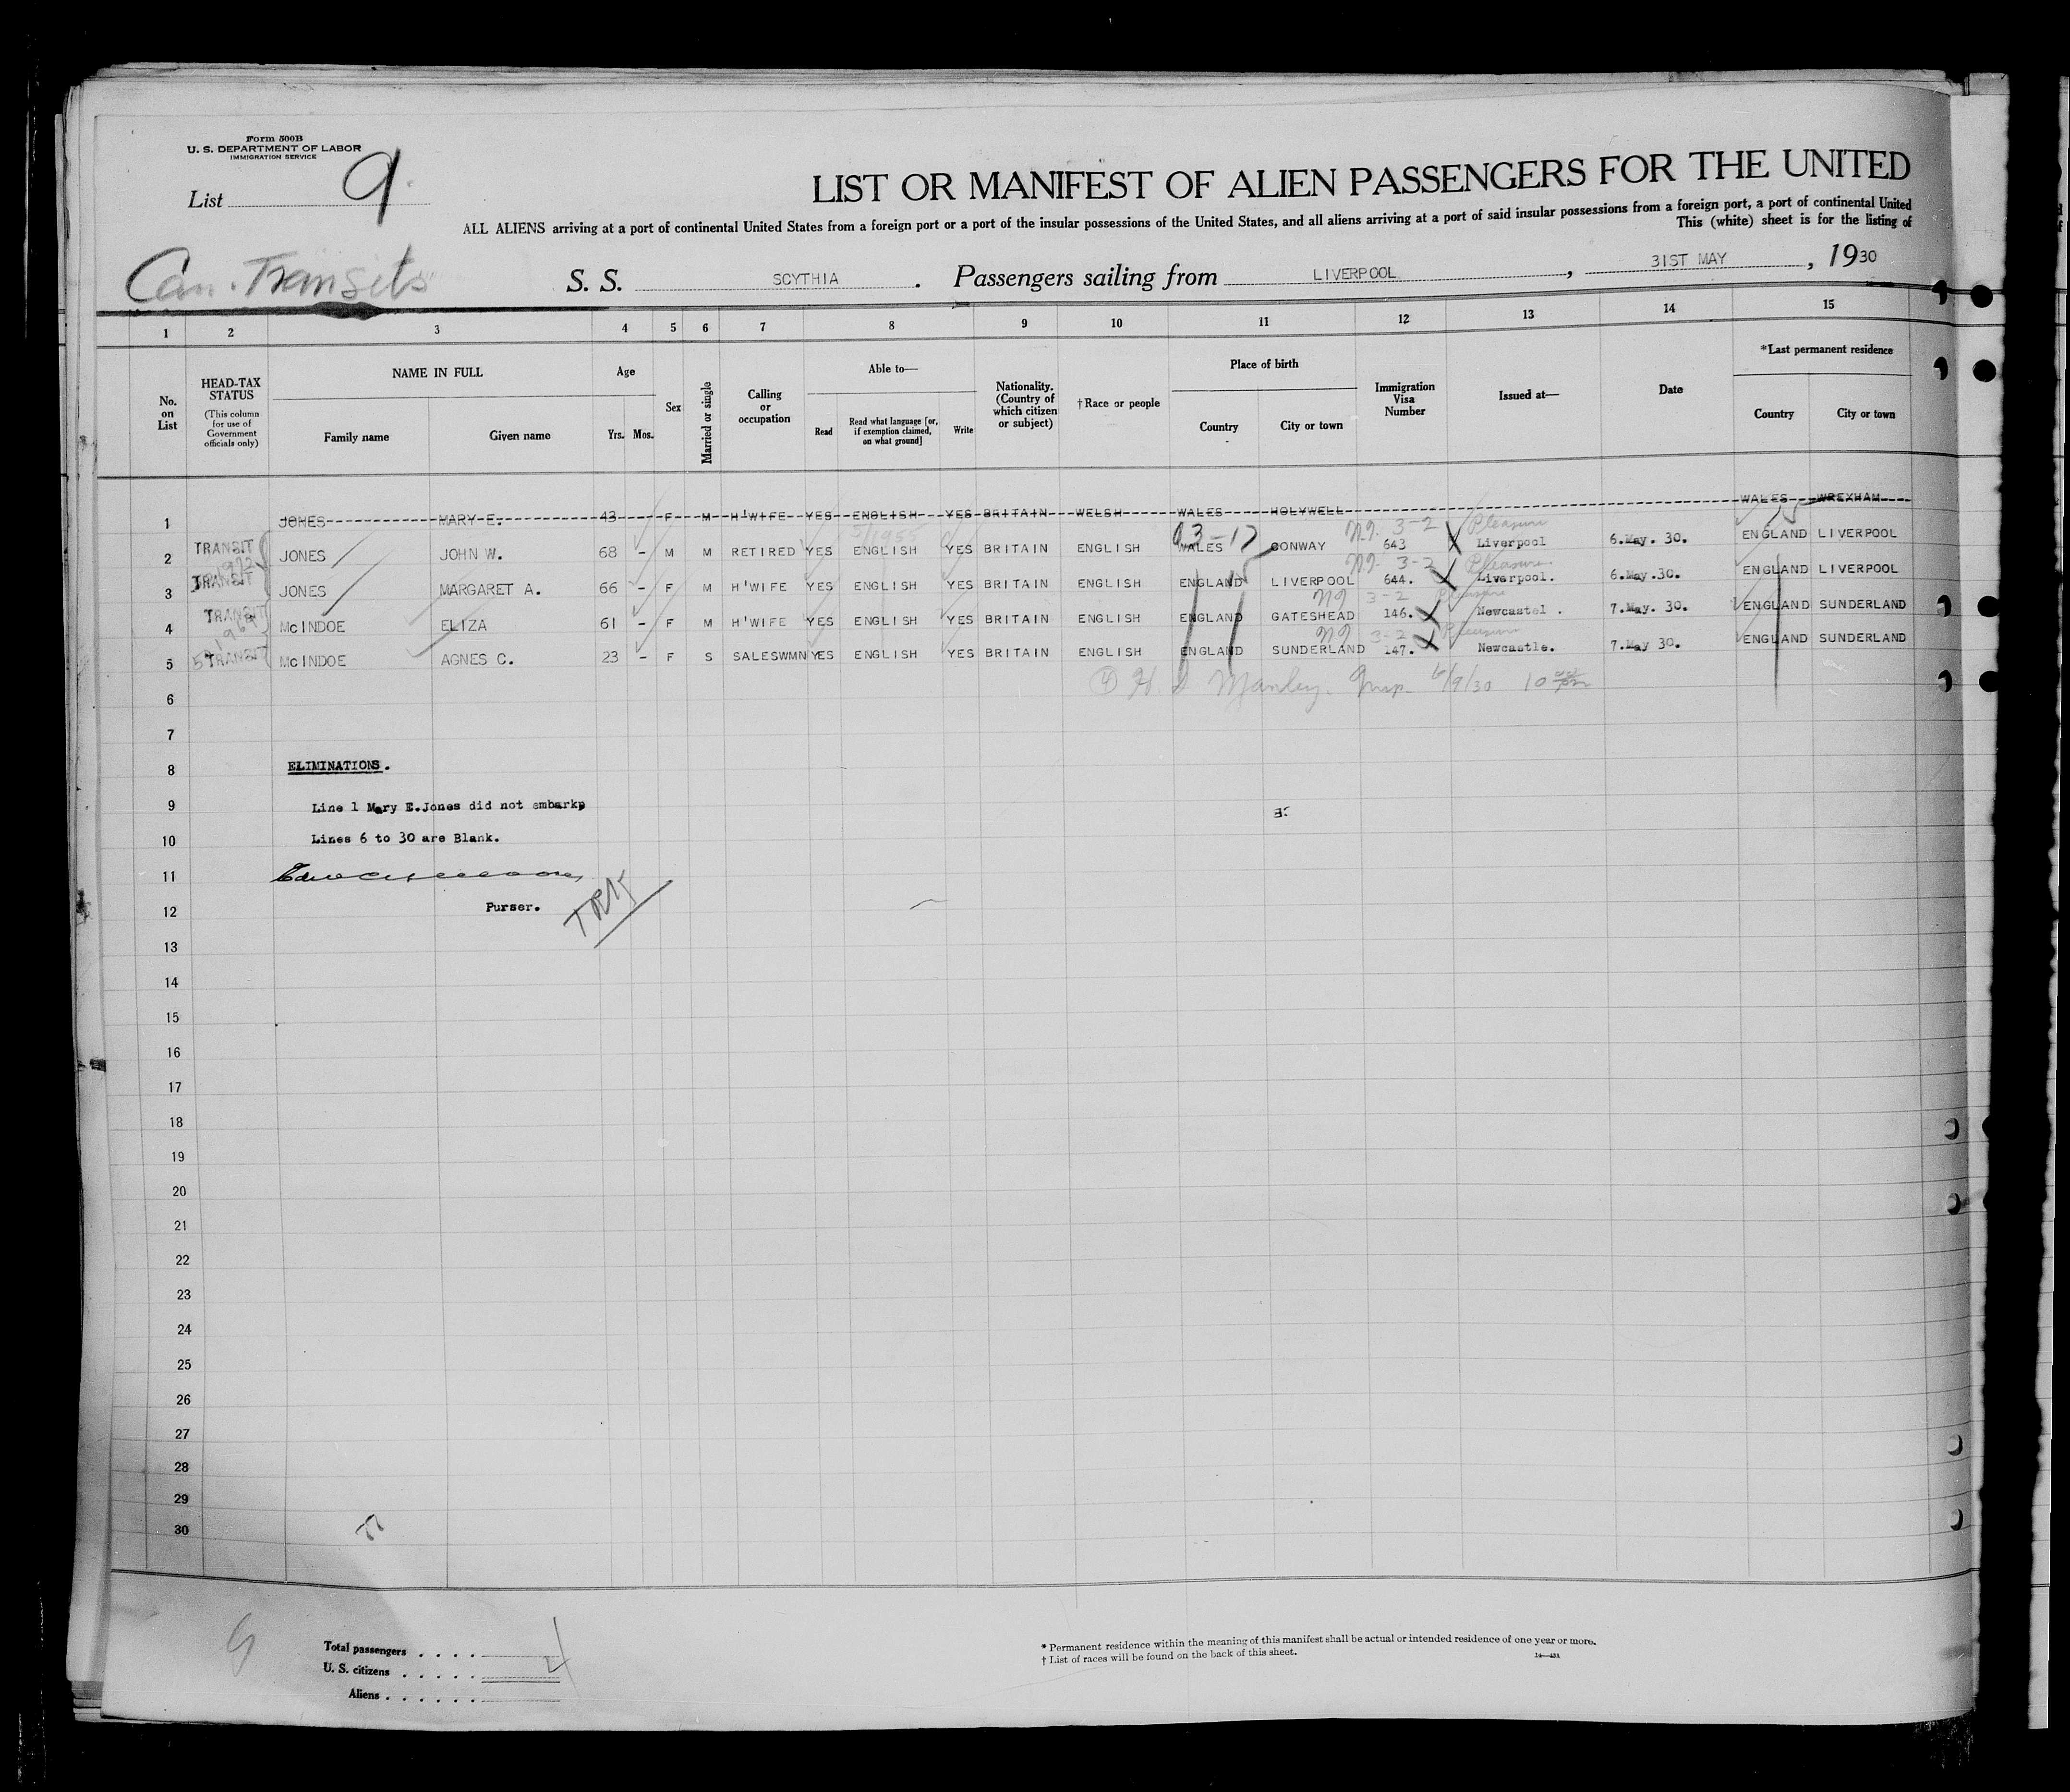 Form 500B
U. S. DEPARTMENT OF LABOR
IMMIGRATION SERVICE
List 9.
LIST OR MANIFEST OF ALIEN PASSENGERS FOR THE UNITED
ALL ALIENS arriving at a port of continental United States from a foreign port or a port of the insular possessions of the United States, and all aliens arriving at a port of said insular possessions from a foreign port, a port of continental United
This (white) sheet is for the listing of
Can. Transits
S. S. SCYTHIA . Passengers sailing from LIVERPOOL , 31ST MAY , 1930
1 2 3 4 5 6 7 8 9 10 11 12 13 14 15
No. on List
HEAD-TAX STATUS
(This column for use of Government officials only)
NAME IN FULL
Family name Given name
Age
Yrs. Mos.
Sex
Married or single
Calling or occupation
Able to—
Read Read what language [or, if exemption claimed, on what ground] Write
Nationality. (Country of which citizen or subject)
†Race or people
Place of birth
Country City or town
Immigration Visa Number
Issued at—
Date
*Last permanent residence
Country City or town
1 JONES MARY E. 43 F M H'WIFE YES ENGLISH YES BRITAIN WELSH WALES HOLYWELL WALES WREXHAM
03-17 3-2 Pleasure
2 TRANSIT JONES JOHN W. 68 - M M RETIRED YES ENGLISH YES BRITAIN ENGLISH WALES CONWAY 643 Liverpool 6.May. 30. ENGLAND LIVERPOOL
3-2 Pleasure
3 TRANSIT JONES MARGARET A. 66 - F M H'WIFE YES ENGLISH YES BRITAIN ENGLISH ENGLAND LIVERPOOL 644. Liverpool. 6.May.30. ENGLAND LIVERPOOL
3-2 Pleasure
4 TRANSIT McINDOE ELIZA 61 - F M H'WIFE YES ENGLISH YES BRITAIN ENGLISH ENGLAND GATESHEAD 146. Newcastel . 7.May. 30. ENGLAND SUNDERLAND
3-2 Pleasure
5 TRANSIT McINDOE AGNES C. 23 - F S SALESWMN YES ENGLISH YES BRITAIN ENGLISH ENGLAND SUNDERLAND 147. Newcastle. 7.May 30. ENGLAND SUNDERLAND
Manley. Insp. 6/9/30
6
7
8 ELIMINATIONS.
9 Line 1 Mary E.Jones did not embarkp
10 Lines 6 to 30 are Blank.
11
12 Purser.
13
14
15
16
17
18
19
20
21
22
23
24
25
26
27
28
29
30
Total passengers . . . .
U. S. citizens . . . . .
Aliens . . . . . .
* Permanent residence within the meaning of this manifest shall be actual or intended residence of one year or more.
† List of races will be found on the back of this sheet.